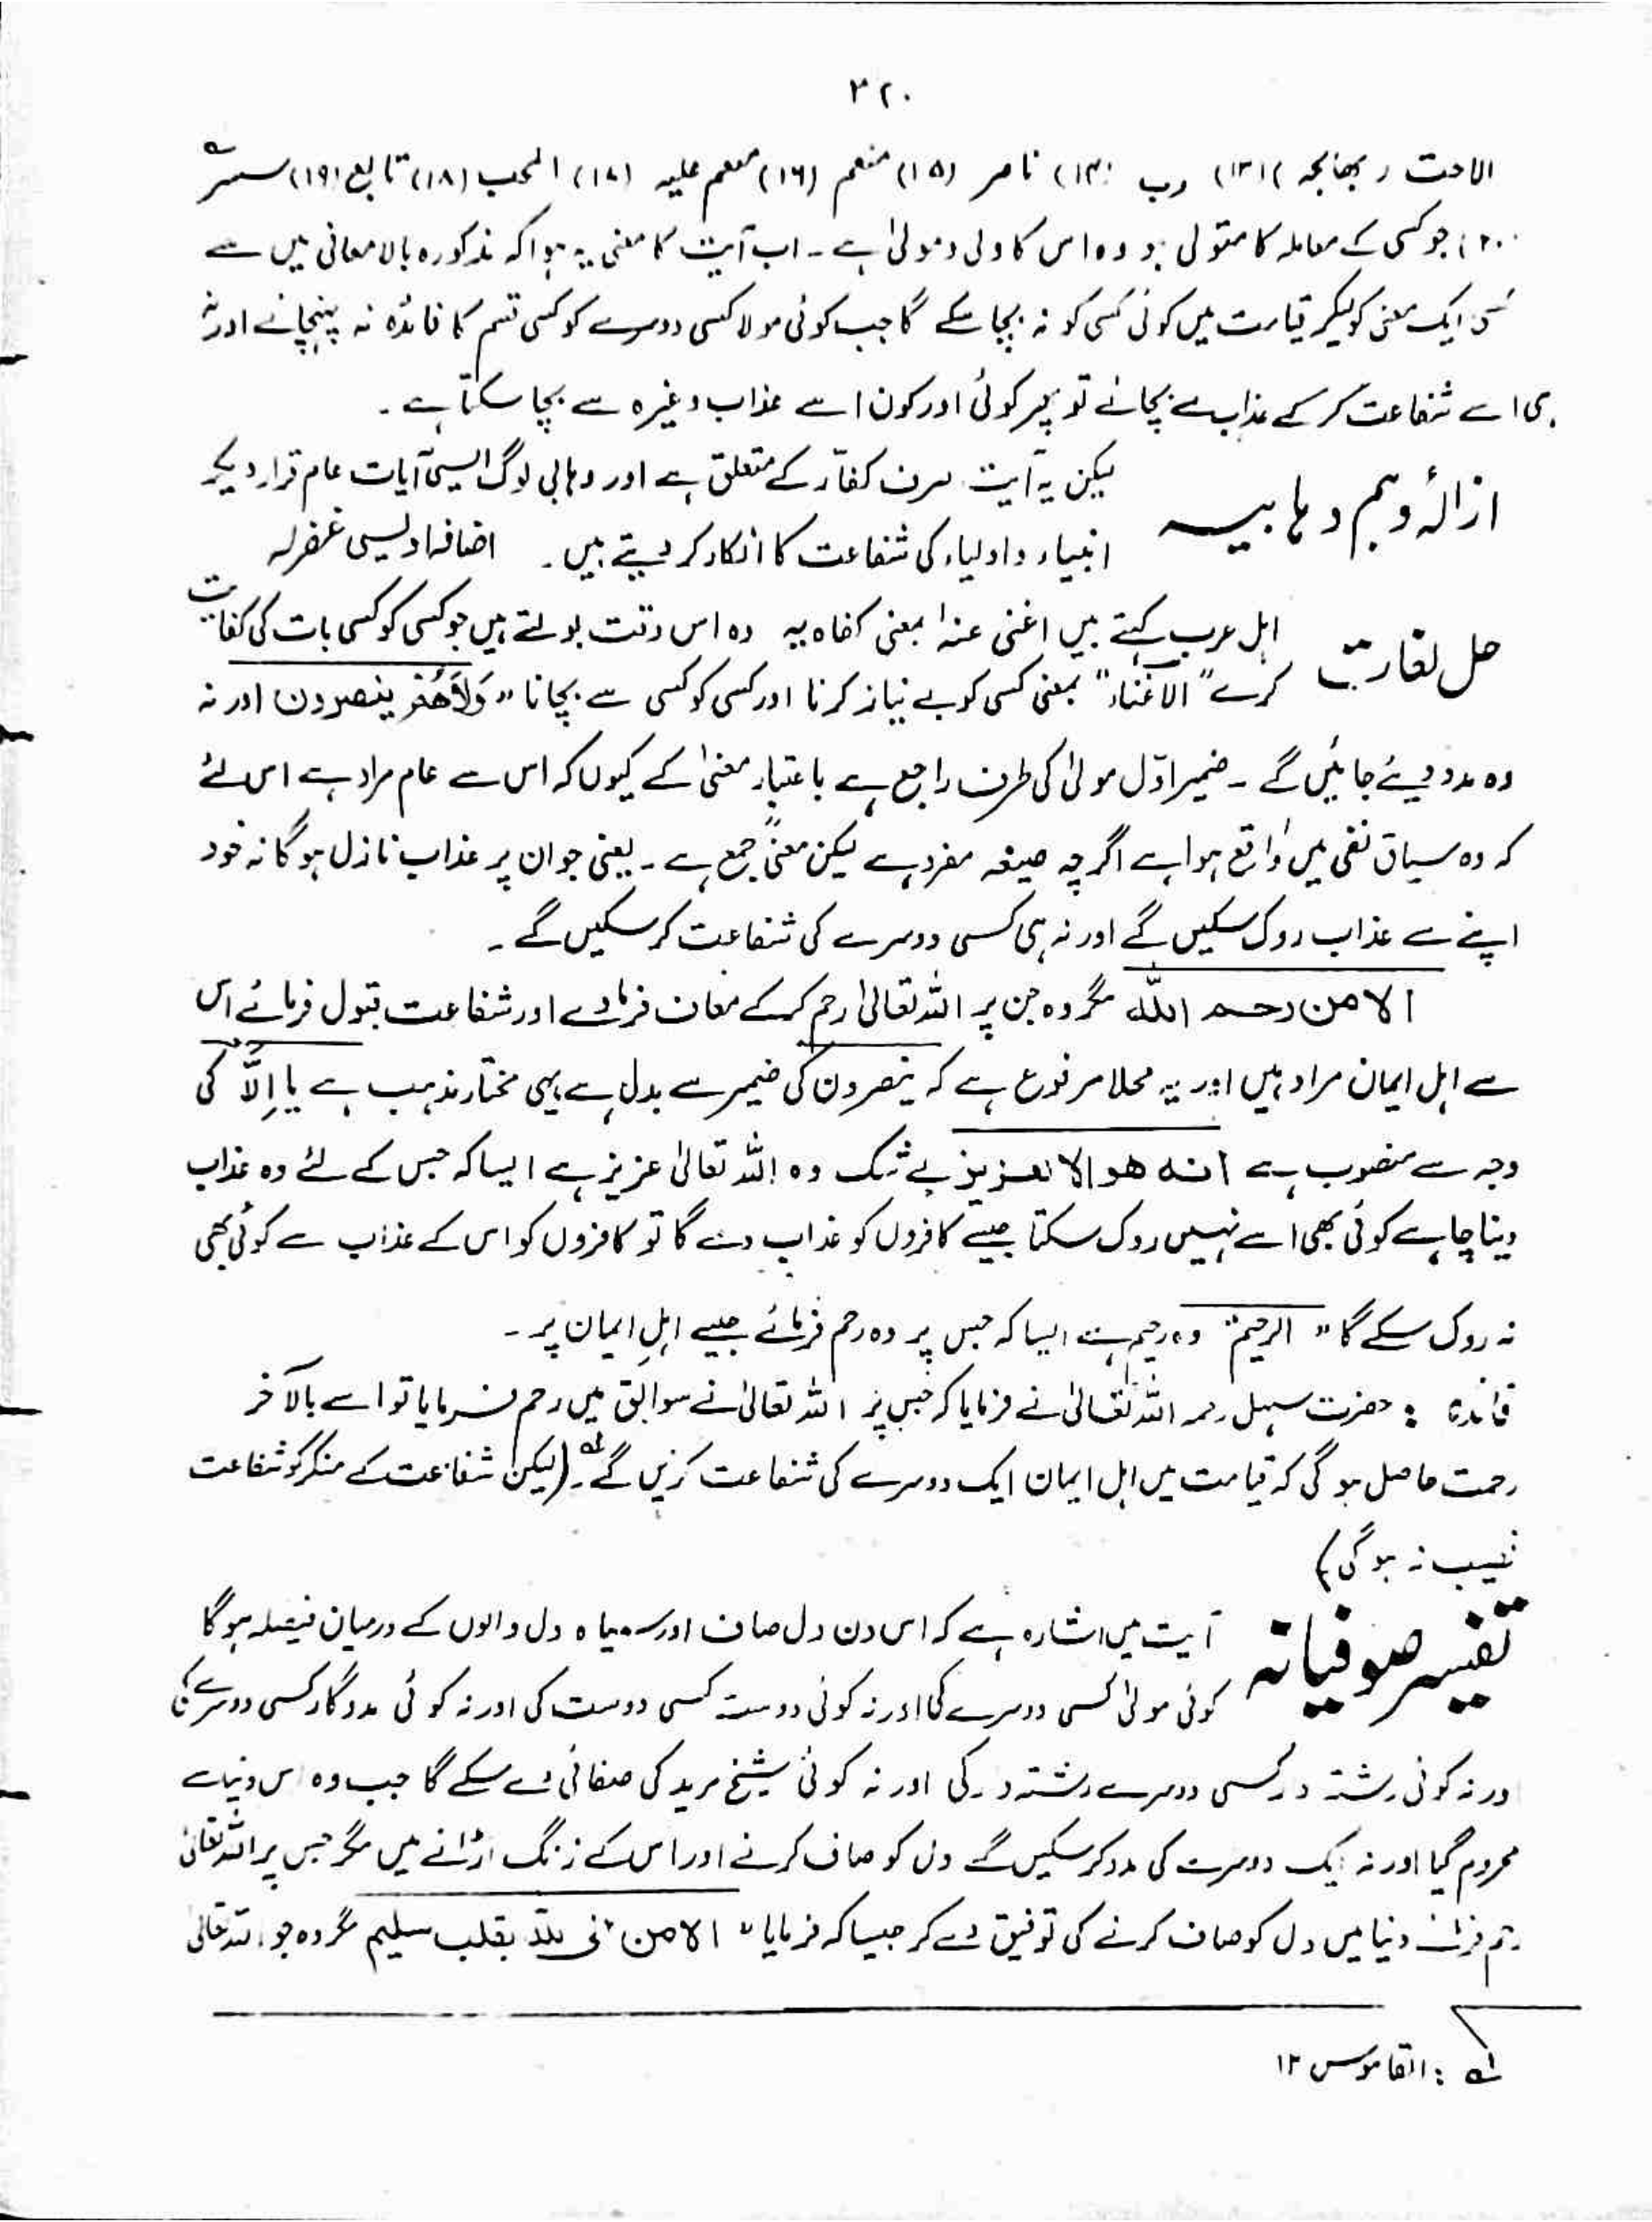 ۳۲۰
الاخت (بھانجہ) (۱۳) رب (۱۴) ناصر (۱۵) منعم (۱۶) منعم علیہ (۱۷) المحب (۱۸) تابع (۱۹)
(۲۰) جو کسی کے معاملہ کا متولی ہو وہ اس کا ولی و مولیٰ ہے ۔ اب آیت کا معنی یہ ہوا کہ مذکورہ بالا معانی میں سے
کسی ایک معنی کو لیکر قیامت میں کوئی کسی کو نہ بچا سکے گا جب کوئی مولا کسی دوسرے کو کسی قسم کا فائدہ نہ پہنچائے اور نہ
ہی اسے شفاعت کر کے عذاب سے بچائے تو پھر کوئی اور کون اسے عذاب وغیرہ سے بچا سکتا ہے ۔
ازالۂ وہم وہابیہ لیکن یہ آیت صرف کفّار کے متعلق ہے اور وہابی لوگ ایسی آیات عام قرار دیکر
انبیاء و اولیاء کی شفاعت کا انکار کر دیتے ہیں ۔ اضافہ اویسی غفرلہ
حل لغات اہل عرب کہتے ہیں اغنی عنہ بمعنی کفاہ یہ وہ اس وقت بولتے ہیں جو کسی کو کسی بات کی کفایت
کرے "الاغناء" بمعنی کسی کو بے نیاز کرنا اور کسی کو کسی سے بچانا "وَلَاھُمْ ینصرون اور نہ
وہ مدد دیئے جائیں گے ۔ ضمیر اوّل مولیٰ کی طرف راجع ہے باعتبار معنیٰ کے کیوں کہ اس سے عام مراد ہے اس لئے
کہ وہ سیاق نفی میں واقع ہوا ہے اگرچہ صیغہ مفرد ہے لیکن معنیً جمع ہے ۔ یعنی جو ان پر عذاب نازل ہو گا نہ خود
اپنے سے عذاب روک سکیں گے اور نہ ہی کسی دوسرے کی شفاعت کر سکیں گے ۔
الا من رحم اللہ مگر وہ جن پر اللہ تعالیٰ رحم کر کے معاف فرما دے اور شفاعت قبول فرمائے اس
سے اہل ایمان مراد ہیں اور یہ محلا مرفوع ہے کہ ینصرون کی ضمیر سے بدل ہے یہی مختار مذہب ہے یا اِلَّا کی
وجہ سے منصوب ہے انہ ھوالا لعزیز بے شک وہ اللہ تعالیٰ عزیز ہے ایسا کہ جس کے لئے وہ عذاب
دینا چاہے کوئی بھی اسے نہیں روک سکتا جیسے کافروں کو عذاب دے گا تو کافروں کو اس کے عذاب سے کوئی بھی
نہ روک سکے گا "الرحیم" وہ رحیم ہے ایسا کہ جس پر وہ رحم فرمائے جیسے اہلِ ایمان پر ۔
فائدہ : حضرت سہل رحمہ اللہ تعالیٰ نے فرمایا کہ جس پر اللہ تعالیٰ نے سوابق میں رحم فرمایا تو اسے بالآخر
رحمت حاصل ہو گی کہ قیامت میں اہل ایمان ایک دوسرے کی شفاعت کریں گے ۔ (لیکن شفاعت کے منکر کو شفاعت
نصیب نہ ہو گی)
تفسیر صوفیانہ آیت میں اشارہ ہے کہ اس دن دل صاف اور سیاہ دل والوں کے درمیان فیصلہ ہو گا
کوئی مولیٰ کسی دوسرے کی اور نہ کوئی دوست کسی دوست کی اور نہ کوئی مددگار کسی دوسرے کی
اور نہ کوئی رشتہ دار کسی دوسرے رشتہ دار کی اور نہ کوئی شیخ مرید کی صفائی دے سکے گا جب وہ اس دنیا سے
محروم گیا اور نہ ایک دوسرے کی مدد کر سکیں گے دل کو صاف کرنے اور اس کے زنگ اڑانے میں مگر جس پر اللہ تعالیٰ
رحم فرمائے دنیا میں دل کو صاف کرنے کی توفیق دے کر جیسا کہ فرمایا " الا من اتی اللہ بقلب سلیم مگر وہ جو اللہ تعالیٰ
لہ : القاموس ۱۲